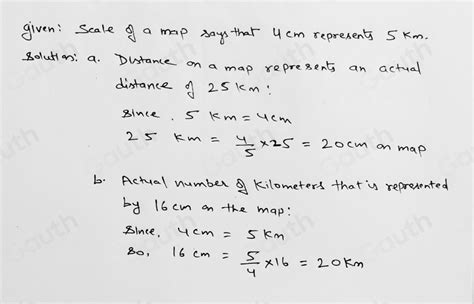 given: Scale of a map says that 4 cm represents 5 Km.
Solution: a. Distance on a map represents an actual
distance of 25 Km:
Since, 5 Km = 4 cm
25 Km = 4/5 × 25 = 20 cm on map
b. Actual number of Kilometers that is represented
by 16 cm on the map:
Since, 4 cm = 5 Km
So, 16 cm = 5/4 × 16 = 20 Km